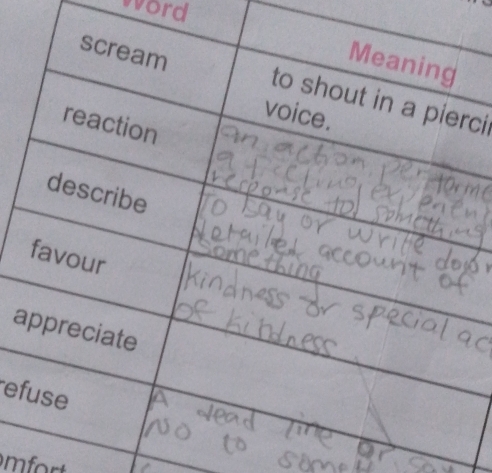 Word
Meaning
scream
to shout in a piercin
voice.
reaction
an action performe
a feeling experien
response to something
describe
To say or write down
detailed account of
something
favour
kindness or special act
of kindness
appreciate
refuse
A dead line or
No to somet
omfort